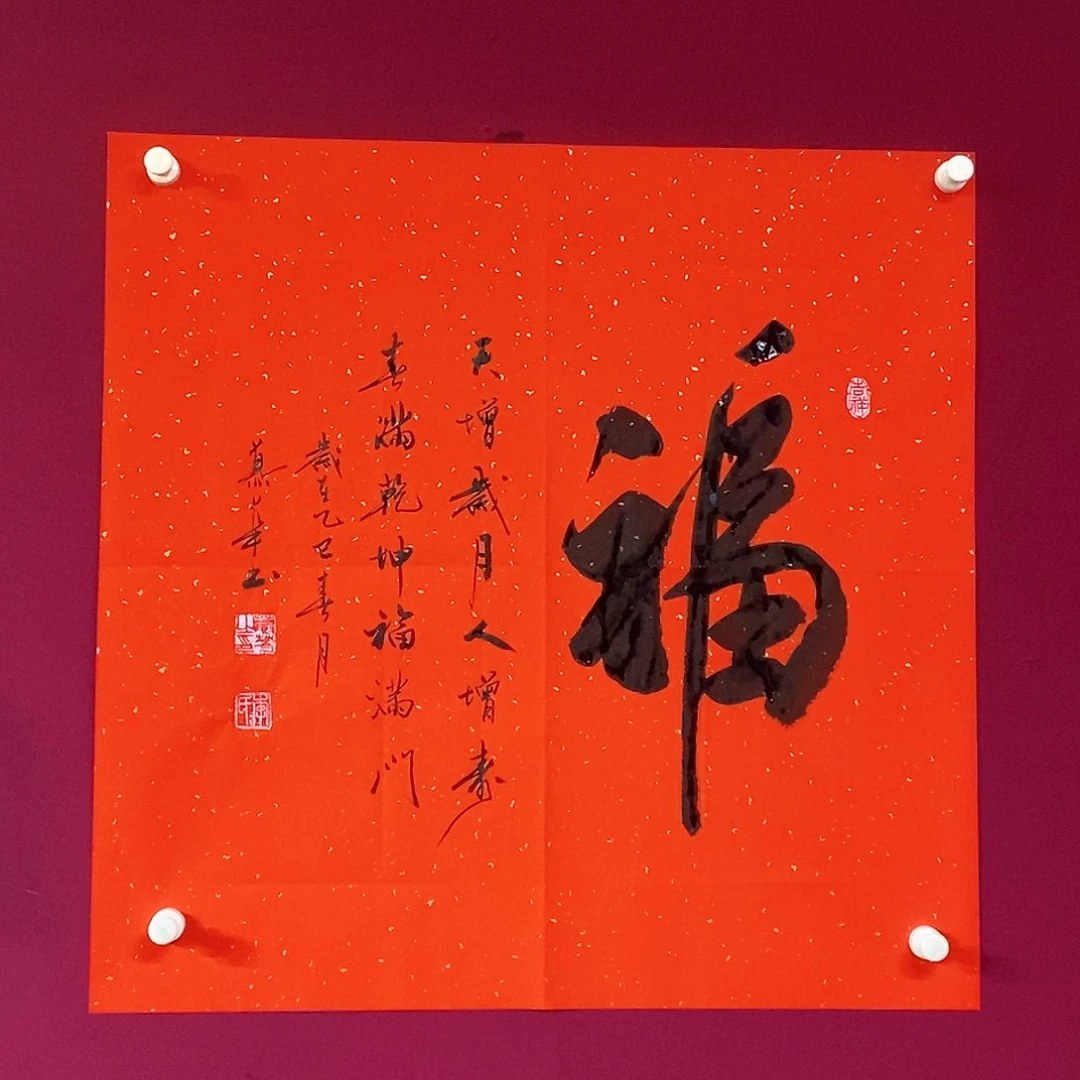 福
天增歲月人增壽
春滿乾坤福滿門
歲在乙巳春月
吉祥